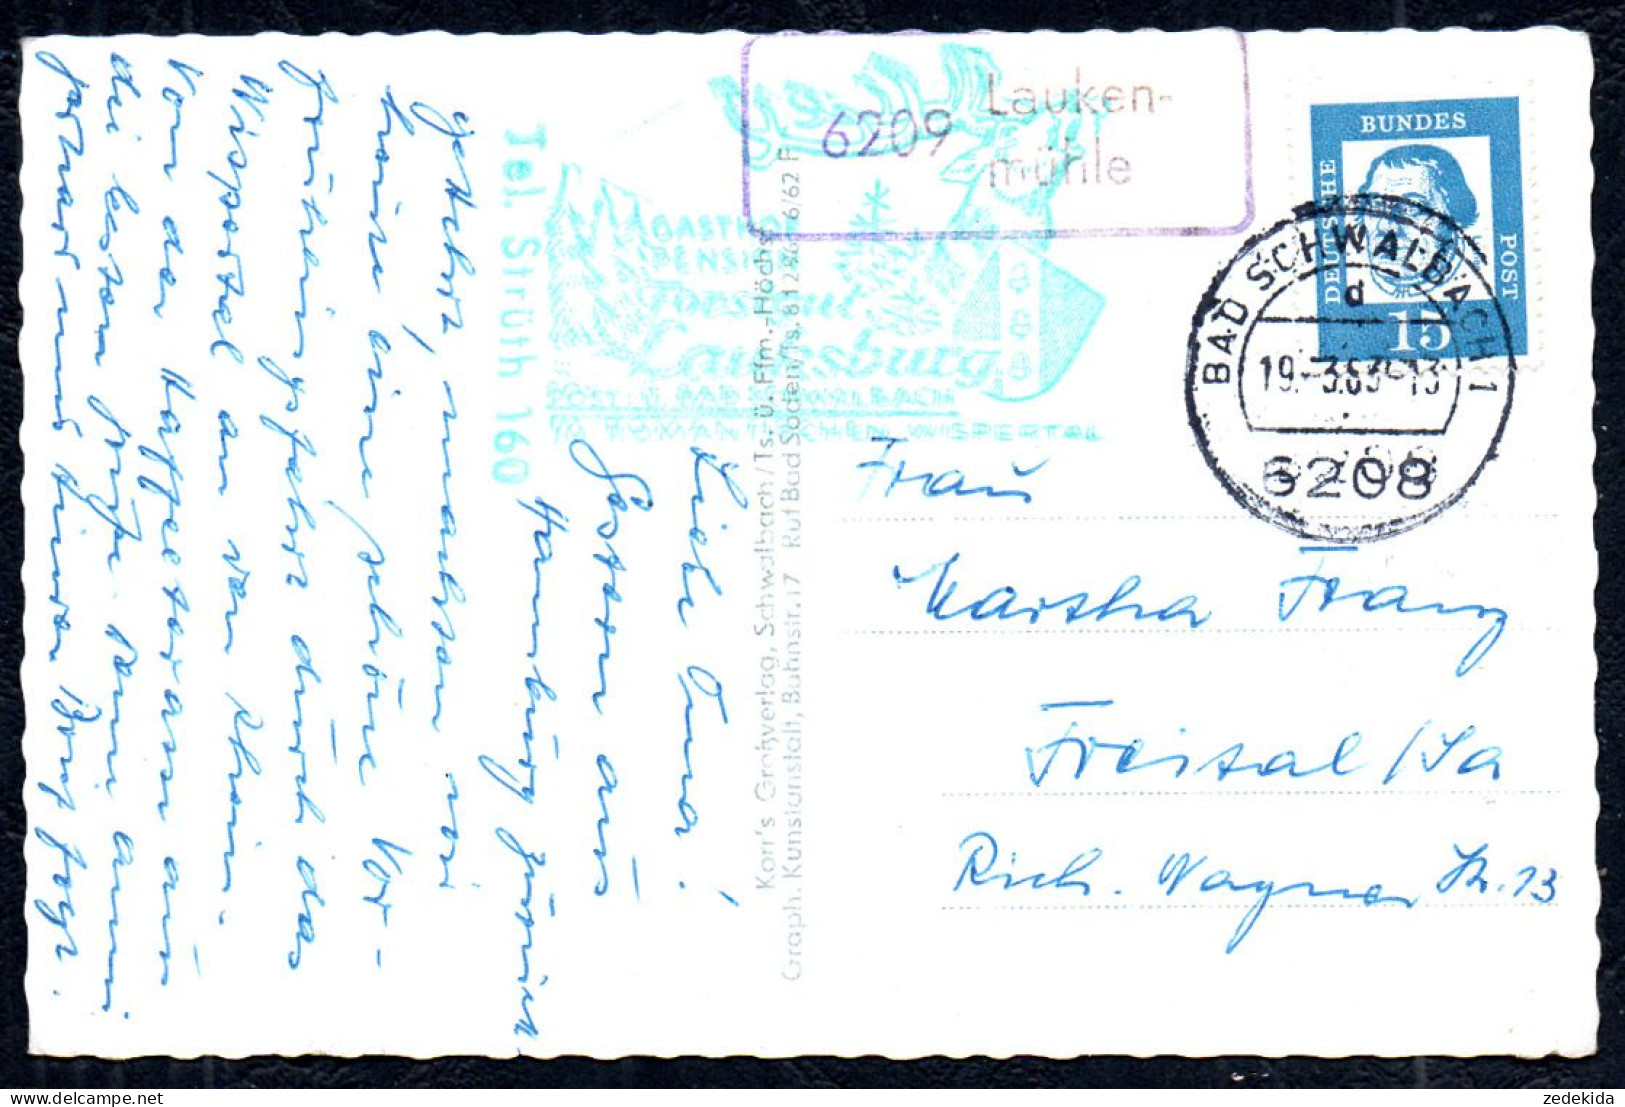 Liebe Oma!
Gestern aus
Hamburg zurück
gekehrt, machten wir
heute eine schöne Vor-
frühlingsfahrt durch das
Wispertal an den Rhein.
Von der Kaffeeterasse aus
die besten Grüße Deine Anni
Gerhard und
6209
Lauken-
mühle
GASTHOF
PENSION
Forstgut
Lauksburg
POST: ü. BAD SCHWALBACH
IM ROMANTISCHEN WISPERTAL
Tel. Strüth 160
Korr's Großverlag, Schwalbach/Ts. ü. Ffm.-Höchst
Graph. Kunstanstalt, Bahnstr. 17 Ruf Bad Soden/Ts. 6/62 F
DEUTSCHE
BUNDES
POST
15
BAD SCHWALBACH 1
d
19.-3.63-13
6208
Frau
Martha Franz
Freital/Sa
Rich. Wagner Str. 13
zedekida